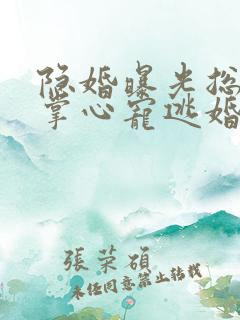 隐婚曝光总
掌心宠逃婚
張荣碩
未经同意禁止转载